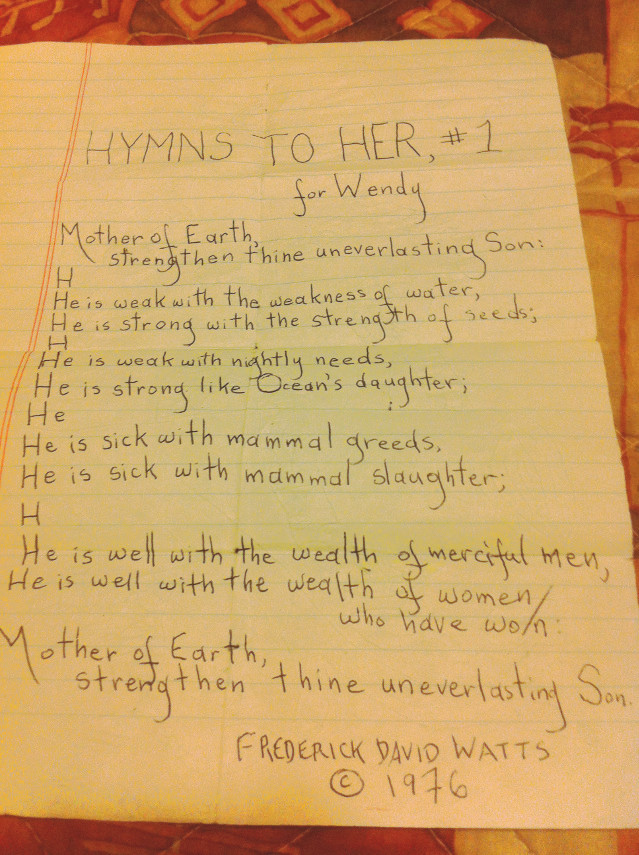 HYMNS TO HER, #1
for Wendy
Mother of Earth,
strengthen thine uneverlasting Son:
H
He is weak with the weakness of water,
He is strong with the strength of seeds;
H
He is weak with nightly needs,
He is strong like Ocean's daughter;
He
He is sick with mammal greeds,
He is sick with mammal slaughter;
H
He is well with the wealth of merciful men,
He is well with the wealth of women
who have won:
Mother of Earth,
strengthen thine uneverlasting Son.
FREDERICK DAVID WATTS
© 1976